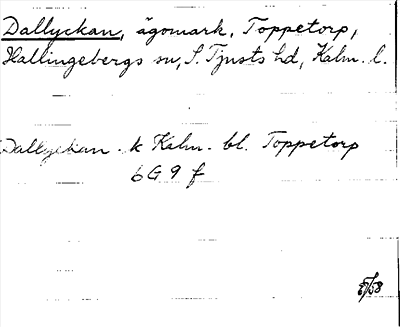 Dallyckan, ägomark, Toppetorp,
Hallingebergs sn, S. Tjusts hd, Kalm. l.
Dallyckan. k Kalm. bl. Toppetorp
6G 9 f